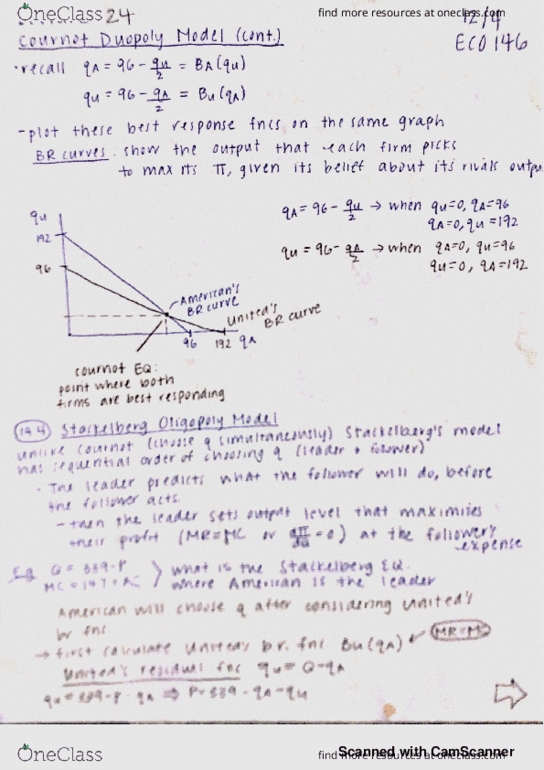 OneClass
24
find more resources at oneclass.com
12/4
Cournot Duopoly Model (cont.)
ECO 146
• recall qA = 96 - qu/2 = BA(qu)
qu = 96 - qA/2 = Bu(qA)
- plot these best response fncs on the same graph
BR curves: show the output that each firm picks
to max its π, given its belief about its rivals outpu
qA = 96 - qu/2 → when qu=0, qA=96
qA=0, qu=192
qu = 96 - qA/2 → when qA=0, qu=96
qu=0, qA=192
qu
192
96
American's
BR curve
United's
BR curve
96 192 qA
cournot EQ:
point where both
firms are best responding
14.4 Stackelberg Oligopoly Model
unlike cournot (choose q simultaneously) Stackelberg's model
has sequential order of choosing q (leader + follower)
• The leader predicts what the follower will do, before
the follower acts.
- then the leader sets output level that maximizes
their profit (MR=MC or dπ/dq = 0) at the follower's
expense
E.g. Q = 339-P
MC = 147 = AC
what is the Stackelberg EQ.
where American is the leader
American will choose q after considering United's
br fnc
→ first calculate United's br. fnc Bu(qA) ✓ MR=MC
United's residual fnc qu = Q-qA
qu = 339-P-qA ⇒ P=339-qA-qu
OneClass
find more resources at oneclass.com
Scanned with CamScanner